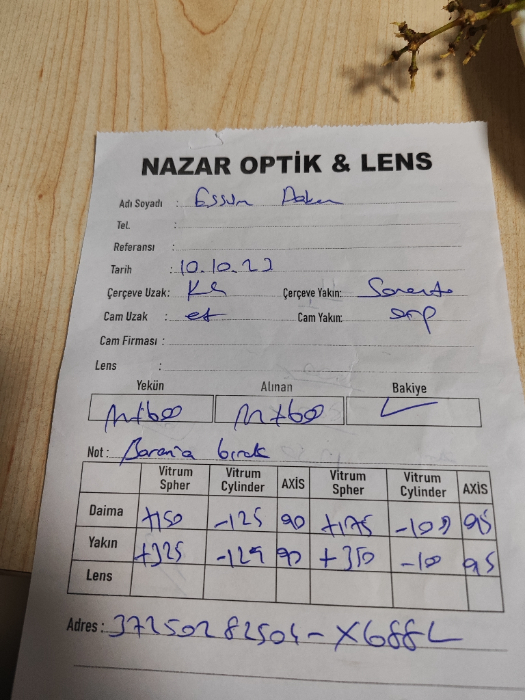 NAZAR OPTİK & LENS
Adı Soyadı :
Tel. :
Referansı :
Tarih : 10.10.23
Çerçeve Uzak: Çerçeve Yakın:
Cam Uzak : Cam Yakın:
Cam Firması :
Lens :
Yekün Alınan Bakiye
Not :
Vitrum Spher Vitrum Cylinder AXİS Vitrum Spher Vitrum Cylinder AXİS
Daima +150 -125 90 +175 -100 95
Yakın +325 -125 90 +350 -100 95
Lens
Adres : 37250282504-X688L